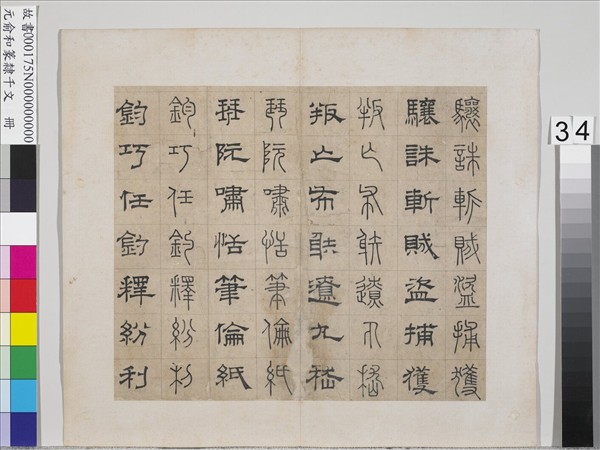 驤誅斬賊盜捕獲
驤誅斬賊盜捕獲
叛亡布射遼丸嵇
叛亡布射遼丸嵇
琴阮嘯恬筆倫紙
琴阮嘯恬筆倫紙
鈞巧任釣釋紛利
鈞巧任釣釋紛利
故書000175N000000000
元俞和篆隸千文 冊
34